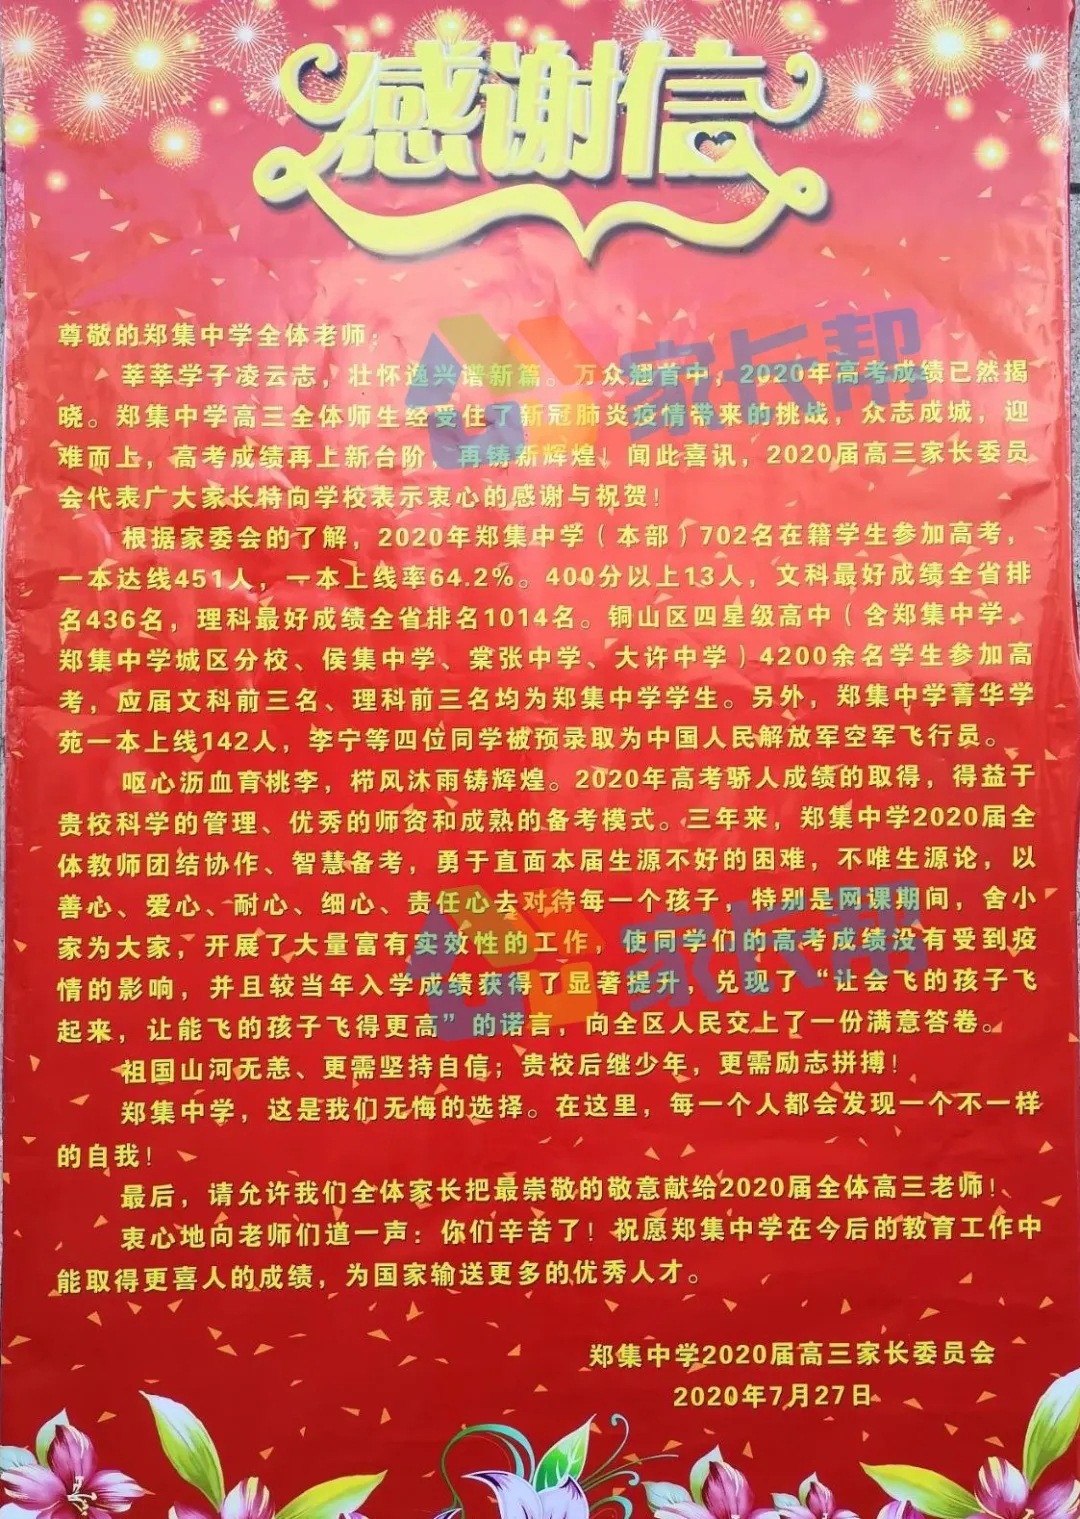 感谢信
尊敬的郑集中学全体老师：
莘莘学子凌云志，壮怀逸兴谱新篇。万众翘首中，2020年高考成绩已然揭
晓。郑集中学高三全体师生经受住了新冠肺炎疫情带来的挑战，众志成城，迎
难而上，高考成绩再上新台阶，再铸新辉煌！闻此喜讯，2020届高三家长委员
会代表广大家长特向学校表示衷心的感谢与祝贺！
根据家委会的了解，2020年郑集中学（本部）702名在籍学生参加高考，
一本达线451人，一本上线率64.2%。400分以上13人，文科最好成绩全省排
名436名，理科最好成绩全省排名1014名。铜山区四星级高中（含郑集中学、
郑集中学城区分校、侯集中学、棠张中学、大许中学）4200余名学生参加高
考，应届文科前三名、理科前三名均为郑集中学学生。另外，郑集中学菁华学
苑一本上线142人，李宁等四位同学被预录取为中国人民解放军空军飞行员。
呕心沥血育桃李，栉风沐雨铸辉煌。2020年高考骄人成绩的取得，得益于
贵校科学的管理、优秀的师资和成熟的备考模式。三年来，郑集中学2020届全
体教师团结协作、智慧备考，勇于直面本届生源不好的困难，不唯生源论，以
善心、爱心、耐心、细心、责任心去对待每一个孩子，特别是网课期间，舍小
家为大家，开展了大量富有实效性的工作，使同学们的高考成绩没有受到疫
情的影响，并且较当年入学成绩获得了显著提升，兑现了“让会飞的孩子飞
起来，让能飞的孩子飞得更高”的诺言，向全区人民交上了一份满意答卷。
祖国山河无恙、更需坚持自信；贵校后继少年，更需励志拼搏！
郑集中学，这是我们无悔的选择。在这里，每一个人都会发现一个不一样
的自我！
最后，请允许我们全体家长把最崇敬的敬意献给2020届全体高三老师！
衷心地向老师们道一声：你们辛苦了！祝愿郑集中学在今后的教育工作中
能取得更喜人的成绩，为国家输送更多的优秀人才。
郑集中学2020届高三家长委员会
2020年7月27日
家长帮
家长帮